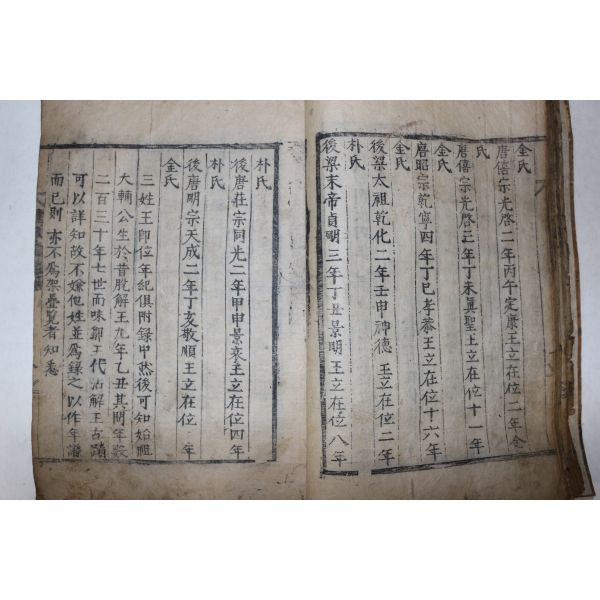 金氏
唐僖宗光啓二年丙午定康王立在位二年金
氏
唐僖宗光啓三年丁未眞聖上立在位十一年
金氏
唐昭宗乾寧四年丁巳孝恭王立在位十六年
朴氏
後梁太祖乾化二年壬申神德王立在位二年
朴氏
後梁末帝貞明三年丁丑景明王立在位八年
朴氏
後唐莊宗同光二年甲申景哀王立在位四年
朴氏
後唐明宗天成二年丁亥敬順王立在位 年
金氏
三姓王卽位年紀俱附錄中然後可知始祖
大輔公生於昔脫解王九年乙丑其間年數
二百三十年七世而味鄒 代沾解王古蹟
可以詳知故不嫌他姓並爲錄之以作年譜
而已則亦不爲架疊覽者知悉